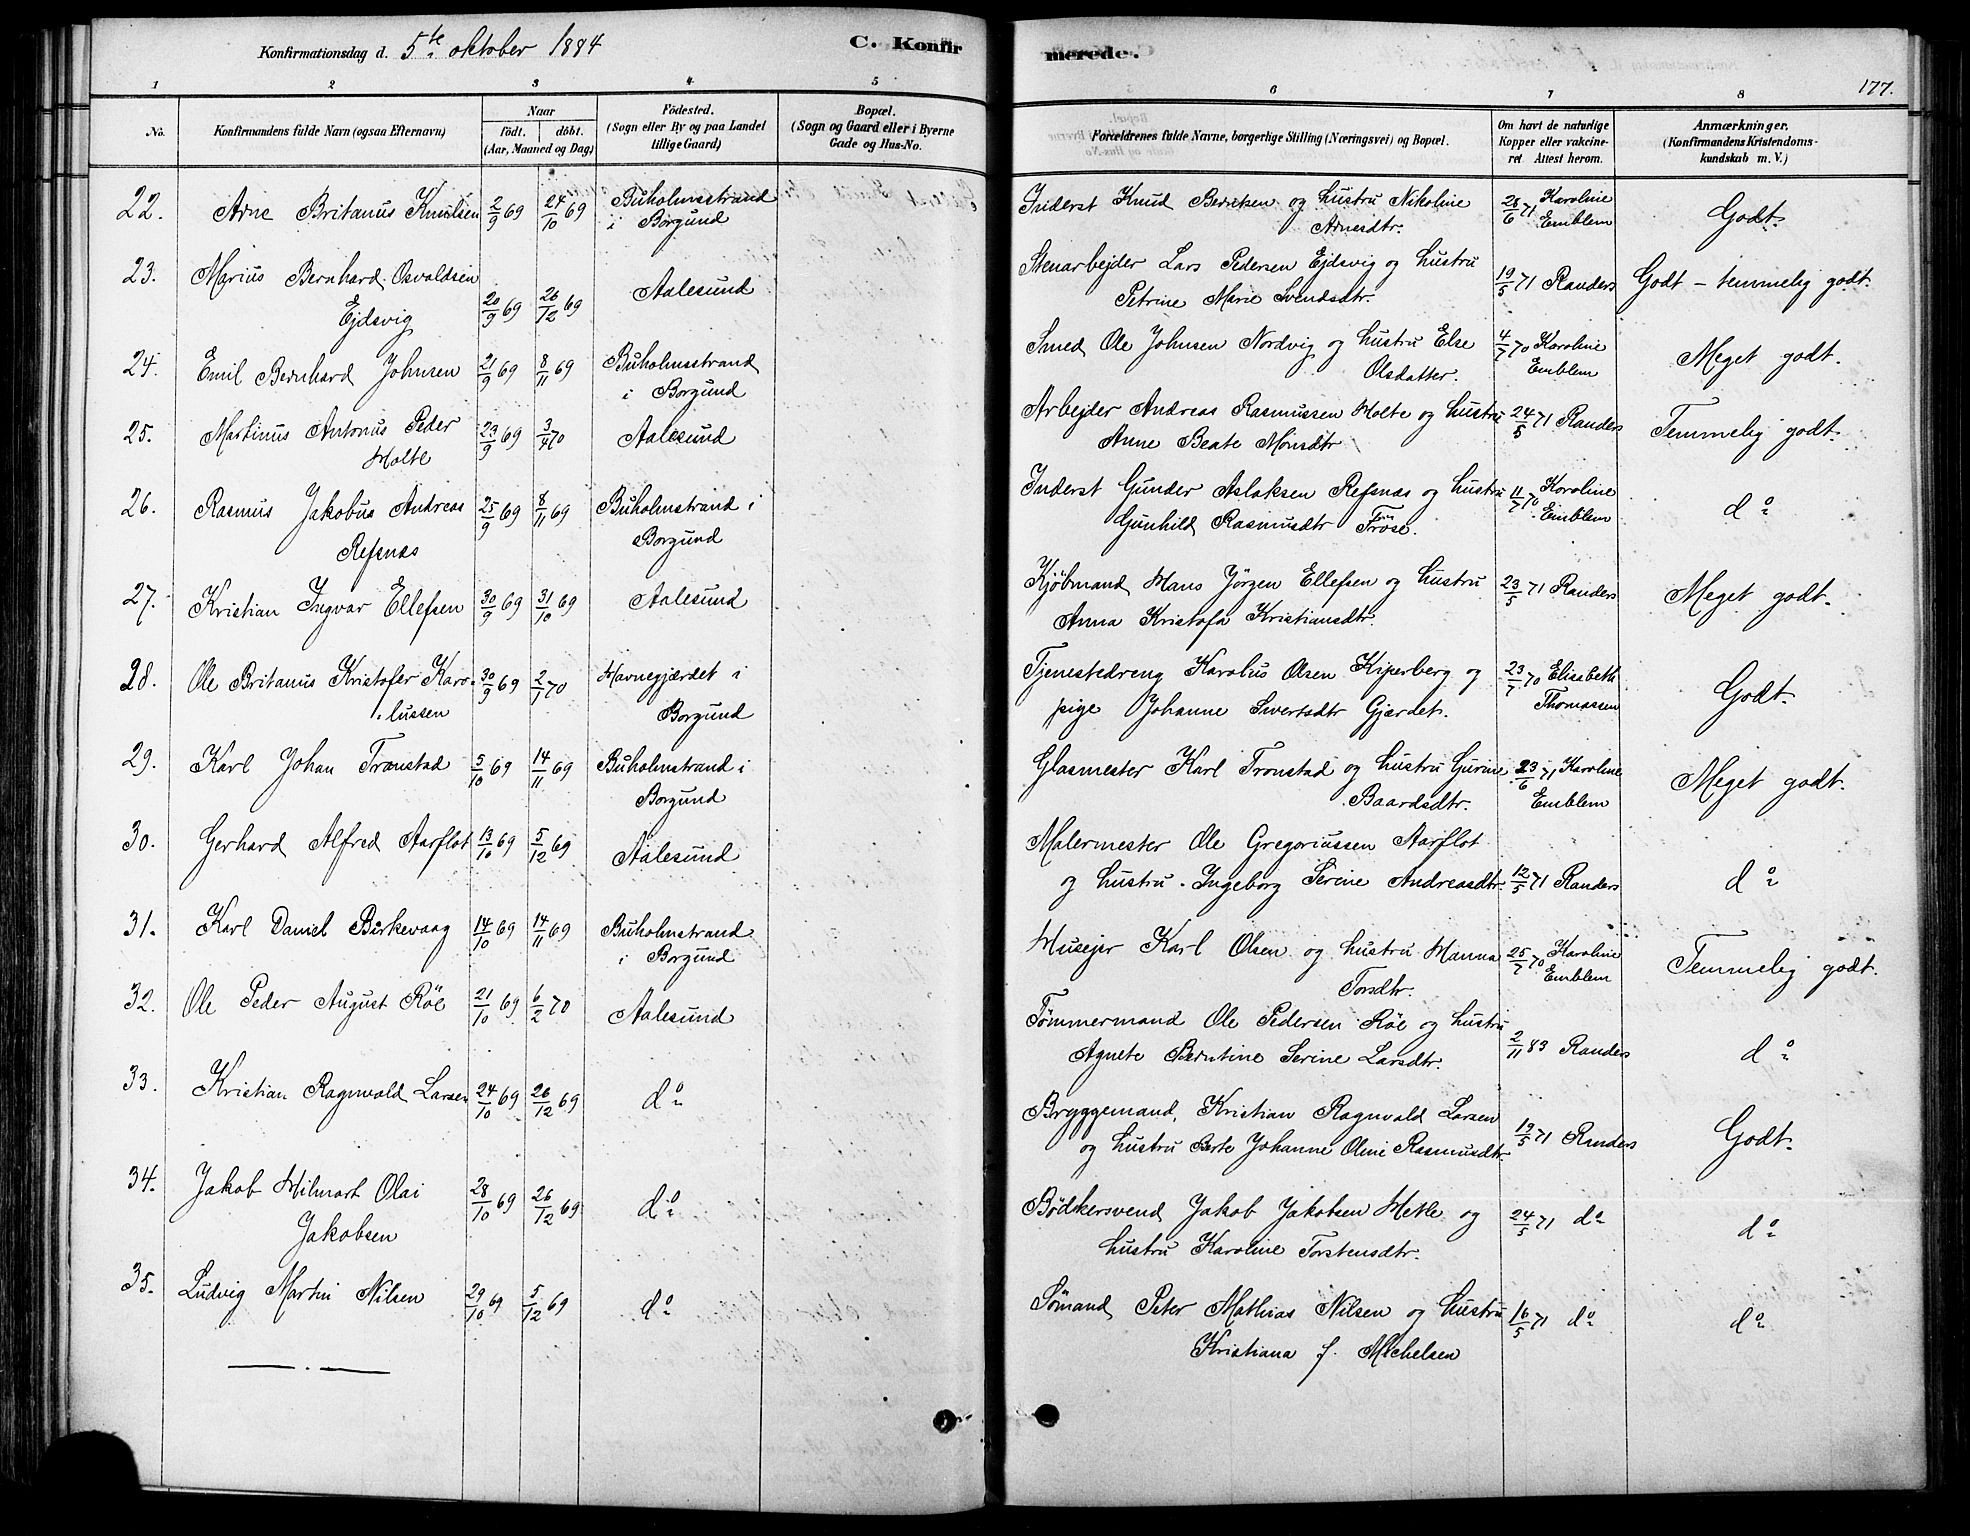 Konfirmationsdag d. 5te oktober 1884
C. Konfirmerede.
177.
1 2 3 4 5 6 7 8
No.
Konfirmandens fulde Navn (ogsaa Efternavn)
Naar
födt. döbt.
(Aar, Maaned og Dag)
Födested.
(Sogn eller By og paa Landet
tillige Gaard)
Bopæl.
(Sogn og Gaard eller i Byerne
Gade og Hus-No.
Forældrenes fulde Navne, borgerlige Stilling (Næringsvei) og Bopæl.
Om havt de naturlige
Kopper eller vakcine-
ret. Attest herom.
Anmærkninger.
(Konfirmandens Kristendoms-
kundskab m. V.)
22. Arne Britanus Knudsen 2/9 69 24/10 69 Buholmsstrand
i Borgund
Inderst Knud Berntsen og hustru Nikoline
Arnesdtr.
28/6 71 Karoline
Emblem
Godt.
23. Marius Bernhard Osvaldsen
Ejdsvig
20/9 69 26/12 69 Aalesund
Stenarbejder Lars Pedersen Ejdsvig og hustru
Petrine Marie Svendsdtr.
19/5 71 Randers
Godt – temmelig godt.
24. Emil Bernhard Johnsen 21/9 69 8/11 69 Buholmsstrand
i Borgund
Smed Ole Johnsen Nordvig og hustru Else
Olsdatter.
4/7 70 Karoline
Emblem
Meget godt.
25. Martinus Antonus Peder
Holte
23/9 69 3/4 70 Aalesund
Arbejder Andreas Rasmussen Holte og hustru
Anne Beate Monsdtr
24/5 71 Randers
Temmelig godt.
26. Rasmus Jakobus Andreas
Refsnæs
25/9 69 8/11 69 Buholmstrand i
Borgund
Inderst Gunder Aslaksen Refsnæs og hustru
Gunhild Rasmusdtr Fröse.
11/7 70 Karoline
Emblem
do
27. Kristian Ingvar Ellefsen 30/9 69 31/10 69 Aalesund
Kjöbmand Hans Jörgen Ellefsen og hustru
Anna Kristofa Kristiansdtr.
23/5 71 Randers
Meget godt.
28. Ole Britanus Kristofer Karo-
lussen
30/9 69 2/1 70 Havnegjærdet i
Borgund
Tjenestedreng Karolus Olsen Kiperberg og
pige Johanne Sivertsdtr Gjærdet.
23/7 70 Elisabeth
Thomassen
Godt.
29. Karl Johan Tronstad 5/10 69 14/11 69 Buholmstrand i
Borgund
Glasmester Karl Tronstad og hustru Gurine
Baardsdtr.
23/6 71 Karoline
Emblem
Meget godt.
30. Gerhard Alfred Aarflot 13/10 69 5/12 69 Aalesund
Malermester Ole Gregoriussen Aarflot
og hustru Ingeborg Serine Andreasdtr.
12/5 71 Randers
do
31. Karl Daniel Birkevaag 14/10 69 14/11 69 Buholmstrand
i Borgund
Husejer Karl Olsen og hustru Hanna
Torsdtr.
25/7 70 Karoline
Emblem
Temmelig godt.
32. Ole Peder August Röe 21/10 69 6/2 70 Aalesund
Tömmermand Ole Pedersen Röe og hustru
Agnete Berntine Serine Larsdtr.
2/11 83 Randers
do
33. Kristian Ragnvald Larsen 24/10 69 26/12 69 do
Bryggemand, Kristian Ragnvald Larsen
og hustru Berte Johanne Oline Rasmusdtr.
19/5 71 Randers
Godt.
34. Jakob Hilmart Olai
Jakobsen
28/10 69 26/12 69 do
Bödkersvend Jakob Jakobsen Hetle og
hustru Karoline Torstensdtr.
24/5 71 do
do
35. Ludvig Martin Nilsen 29/10 69 5/12 69 do
Sömand Peter Mathias Nilsen og hustru
Kristiana f. Michelsen
16/5 71 do
do